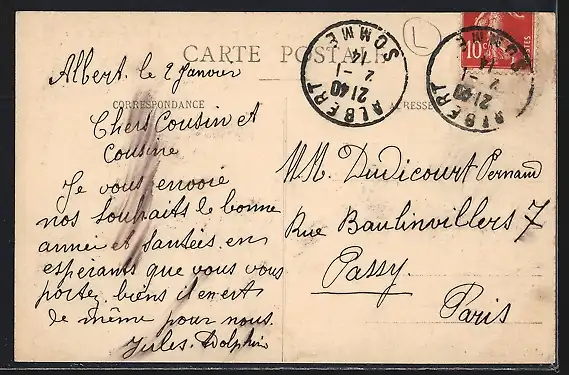 CARTE POSTALE
CORRESPONDANCE
ADRESSE
Albert le 2 Janvier
Chers Cousin et
Cousine
Je vous envoie
nos souhaits de bonne
année et santées en
espérants que vous vous
portez biens il en est
de même pour nous.
Jules. Dolphin
MM. Dudicourt Fernand
Rue Baulinvillers 7
Passy.
Paris
ALBERT
SOMME
21 40
2 - 1
14
ALBERT
SOMME
21 40
2 - 1
14
10c
POSTES
L